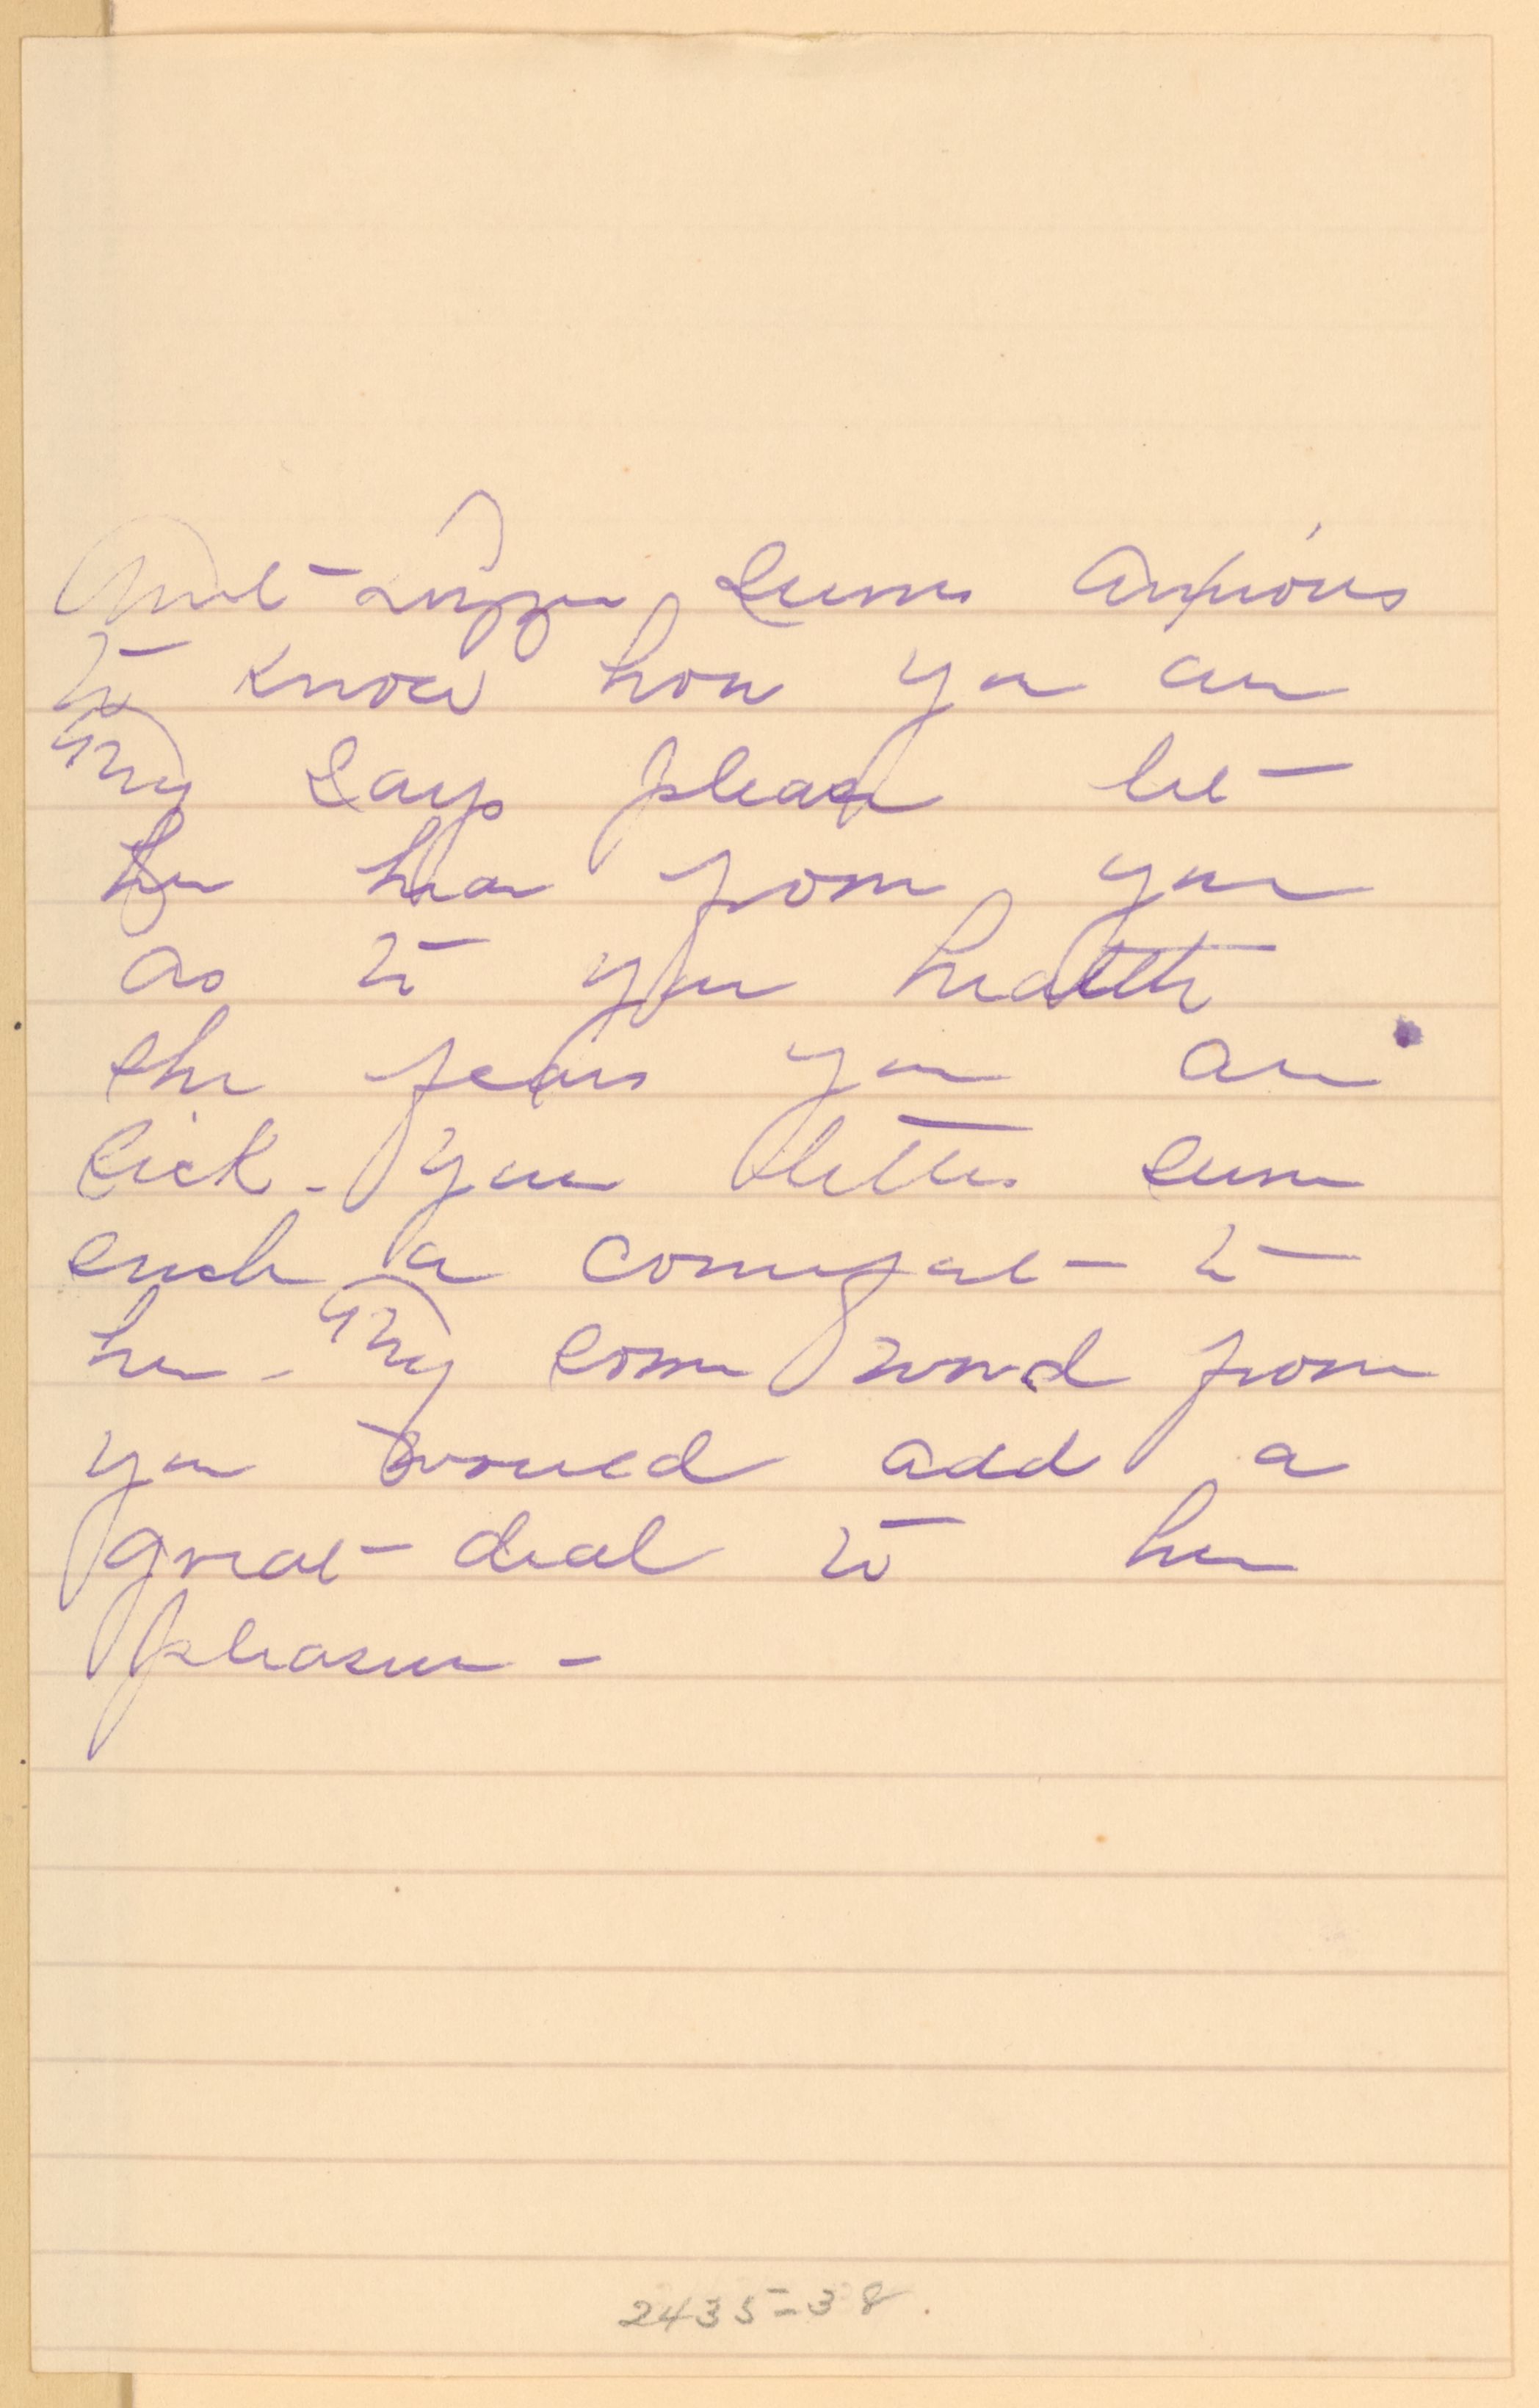 Aunt Lizzie seems anxious
to know how you are
says please let
her hear from you
as to your health
she fears you are
sick - your letters seem
such a comfort to
her - some word from
you would add a
great deal to her
pleasure -
2435-38.